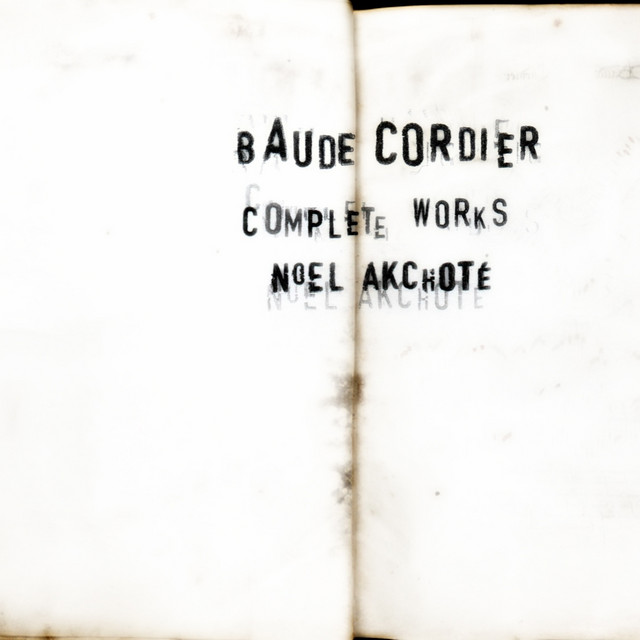 BAUDE CORDIER
COMPLETE WORKS
NOEL AKCHOTÉ